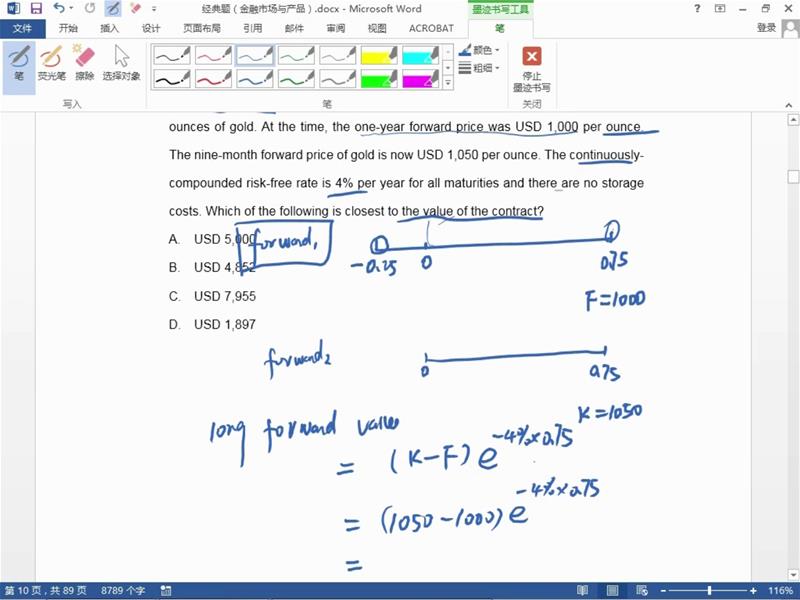 经典题（金融市场与产品）.docx - Microsoft Word
墨迹书写工具
文件 开始 插入 设计 页面布局 引用 邮件 审阅 视图 ACROBAT 笔 登录
笔 荧光笔 擦除 选择对象 颜色 粗细 停止墨迹书写
写入 笔 关闭
ounces of gold. At the time, the one-year forward price was USD 1,000 per ounce.
The nine-month forward price of gold is now USD 1,050 per ounce. The continuously-
compounded risk-free rate is 4% per year for all maturities and there are no storage
costs. Which of the following is closest to the value of the contract?
A. USD 5,000 forward₁
-0.25 0 0.75
B. USD 4,852
C. USD 7,955 F=1000
D. USD 1,897
forward₂
0 0.75
K=1050
long forward value
= (K-F) e^-4%×0.75
= (1050-1000) e^-4%×0.75
=
第 10 页，共 89 页 8789 个字 116%